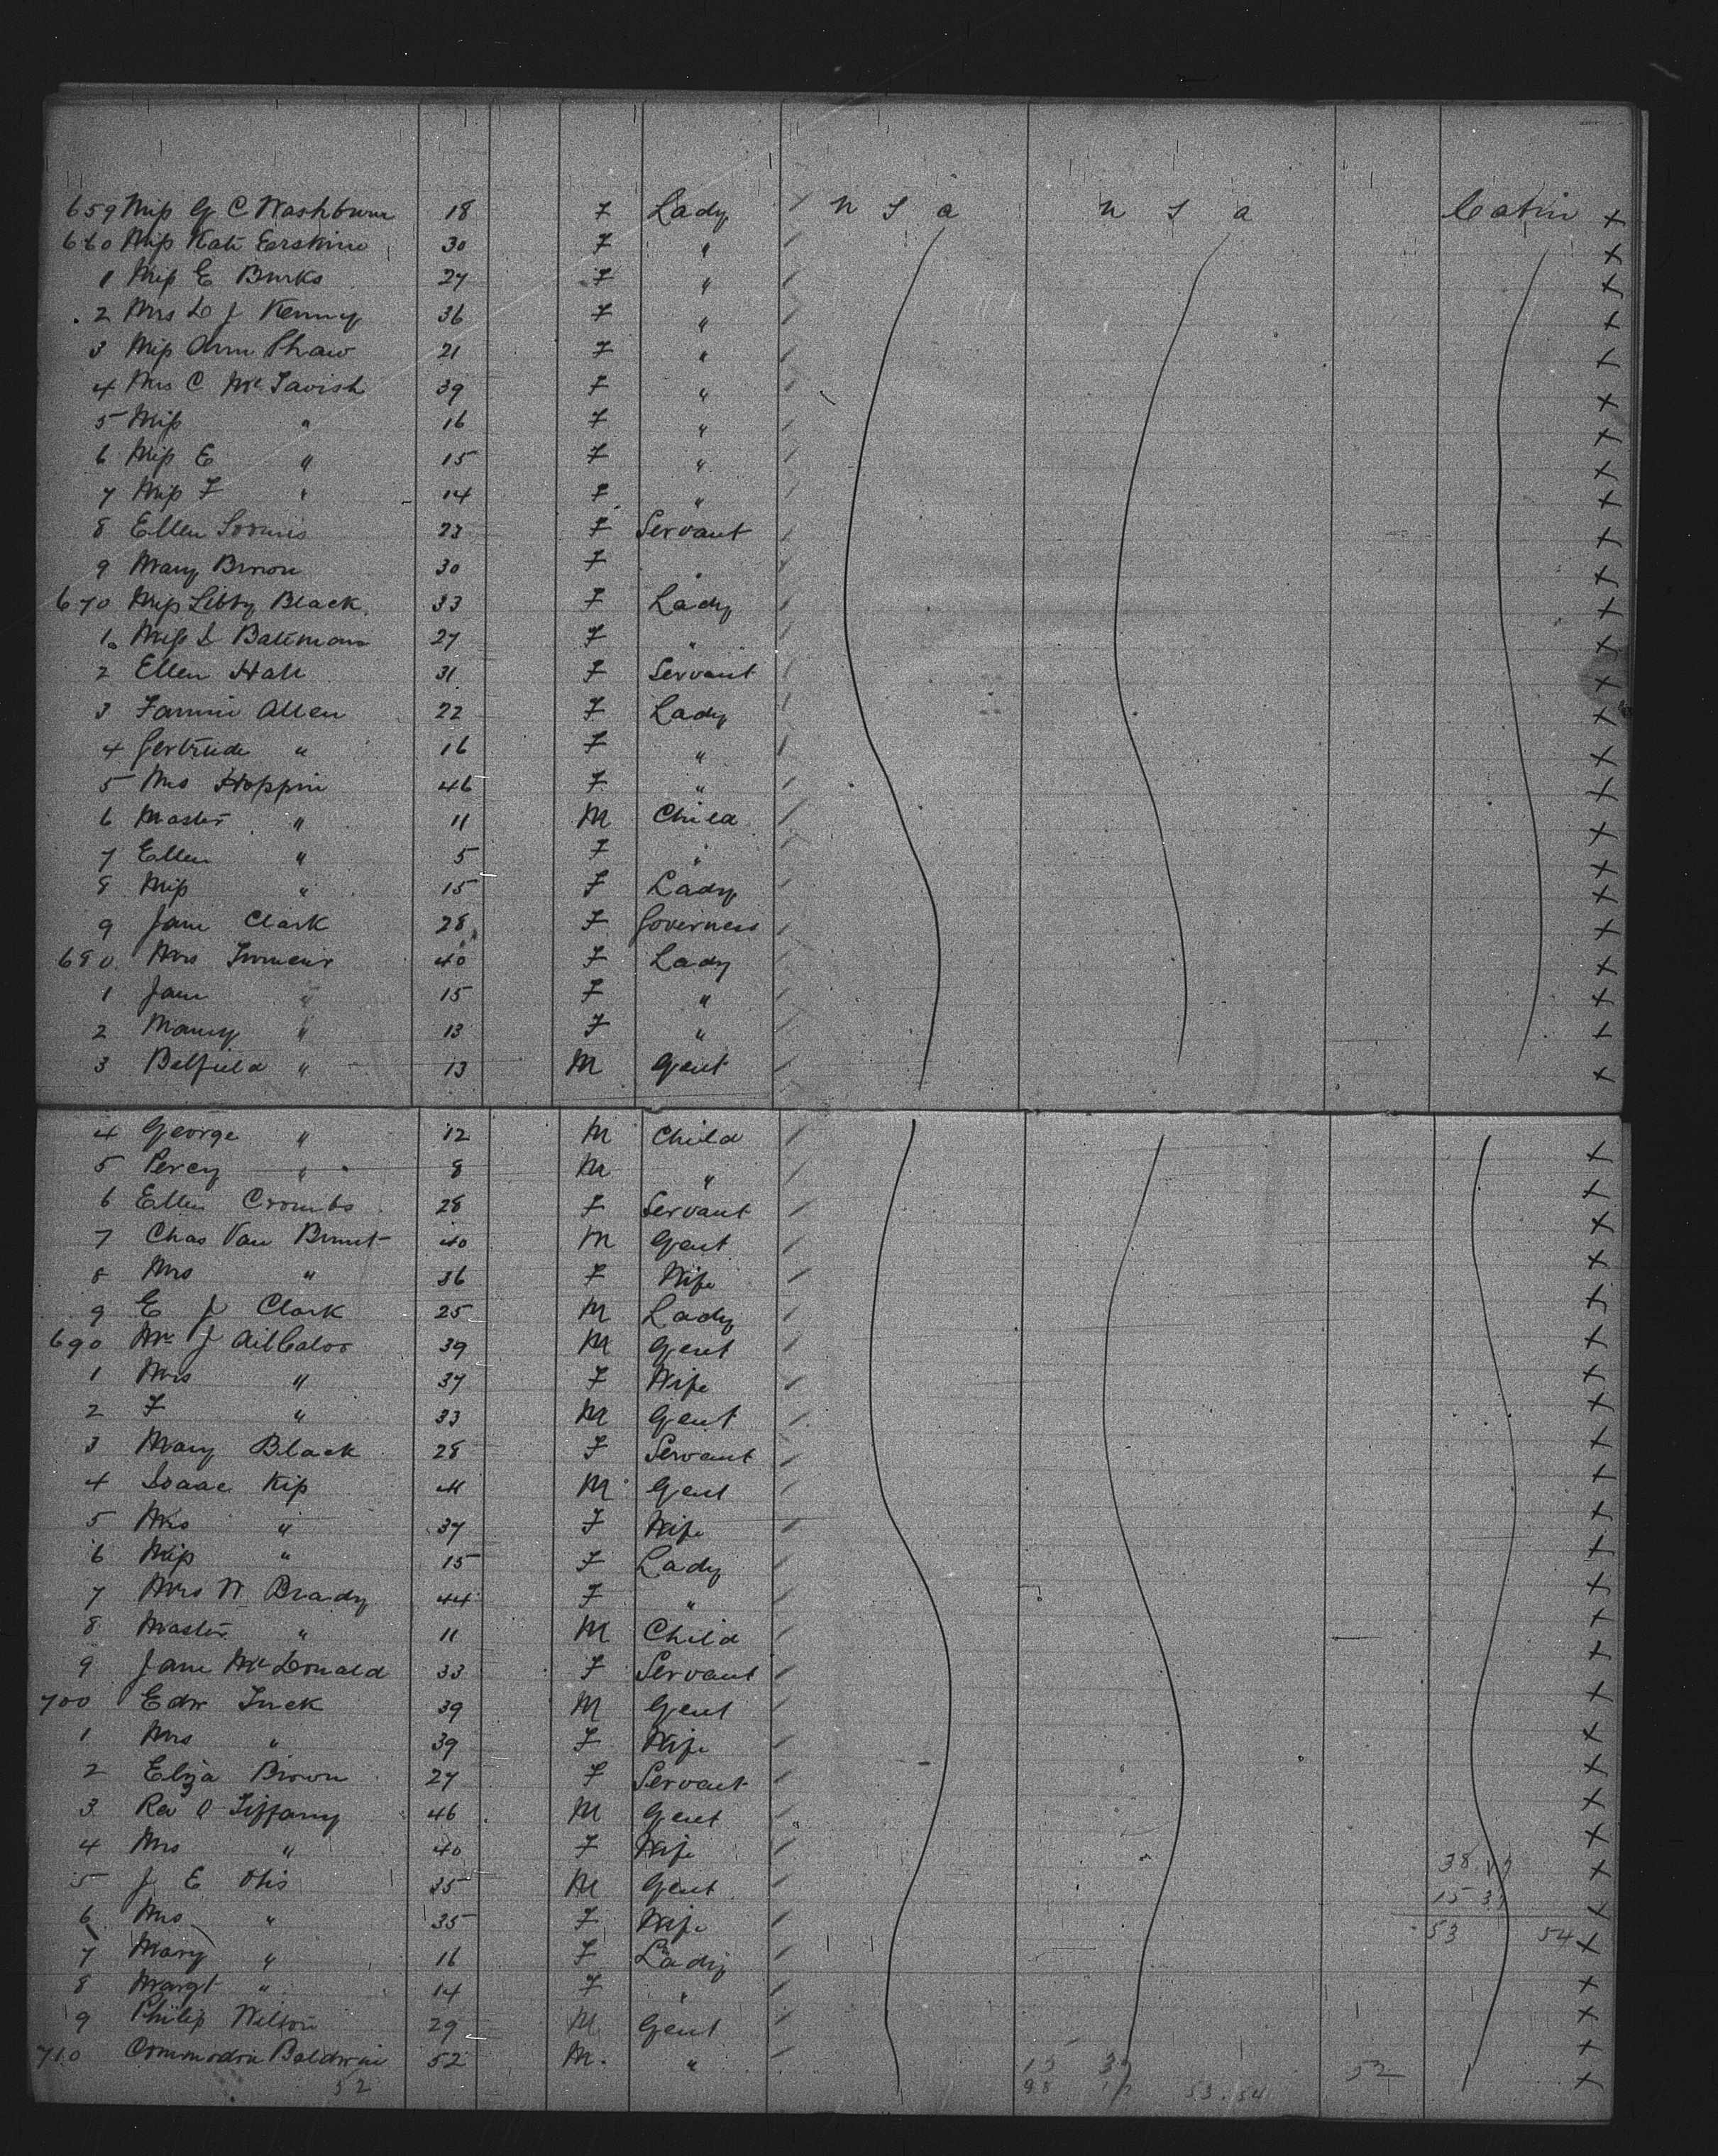 659 Miss G C Washburn 18 F Lady U S a U S a Cabin X
660 Miss Kate Erskine 30 F " X
1 Miss E Burks 27 F " X
2 Mrs L J Kenny 36 F " X
3 Miss Ann Shaw 21 F " X
4 Mrs C McTavish 39 F " X
5 Miss " 16 F " X
6 Miss E " 15 F " X
7 Miss F " 14 F " X
8 Ellen Loomis 23 F Servant X
9 Mary Brown 30 F " X
670 Miss Libby Black 33 F Lady X
1 Miss I Bateman 27 F " X
2 Ellen Hall 31 F Servant X
3 Fannie Allen 22 F Lady X
4 Gertrude " 16 F " X
5 Mrs Hoppin 46 F " X
6 Master " 11 M Child X
7 Ellen " 5 F " X
8 Miss " 15 F Lady X
9 Jane Clark 28 F Governess X
680 Mrs 40 F Lady X
1 Jane " 15 F " X
2 " 13 F " X
3 Belfield " 13 M Gent X
4 George " 12 M Child X
5 Percy " 8 M " X
6 Ellen Crombs 28 F Servant X
7 Chas Van Brunt 40 M Gent X
8 Mrs " 36 F Wife X
9 E J Clark 25 M Lady X
690 Mr J 39 M Gent X
1 Mrs " 37 F Wife X
2 F " 33 M Gent X
3 Mary Black 28 F Servant X
4 Isaac Kip 41 M Gent X
5 Mrs " 37 F Wife X
6 Miss " 15 F Lady X
7 Mrs N Brady 44 F " X
8 Master " 11 M Child X
9 Jane McDonald 33 F Servant X
700 Edw Tuck 39 M Gent X
1 Mrs " 39 F Wife X
2 Eliza Brown 27 F Servant X
3 Rev O Tiffany 46 M Gent X
4 Mrs " 40 F Wife X
5 J E Otis 35 M Gent X
6 Mrs " 35 F Wife X
7 Mary " 16 F Lady 53 54 X
8 Margt " 14 F " X
9 Philip Wilson 29 M Gent X
710 Commodore Baldwin 52 M " 52 X
52 53.54